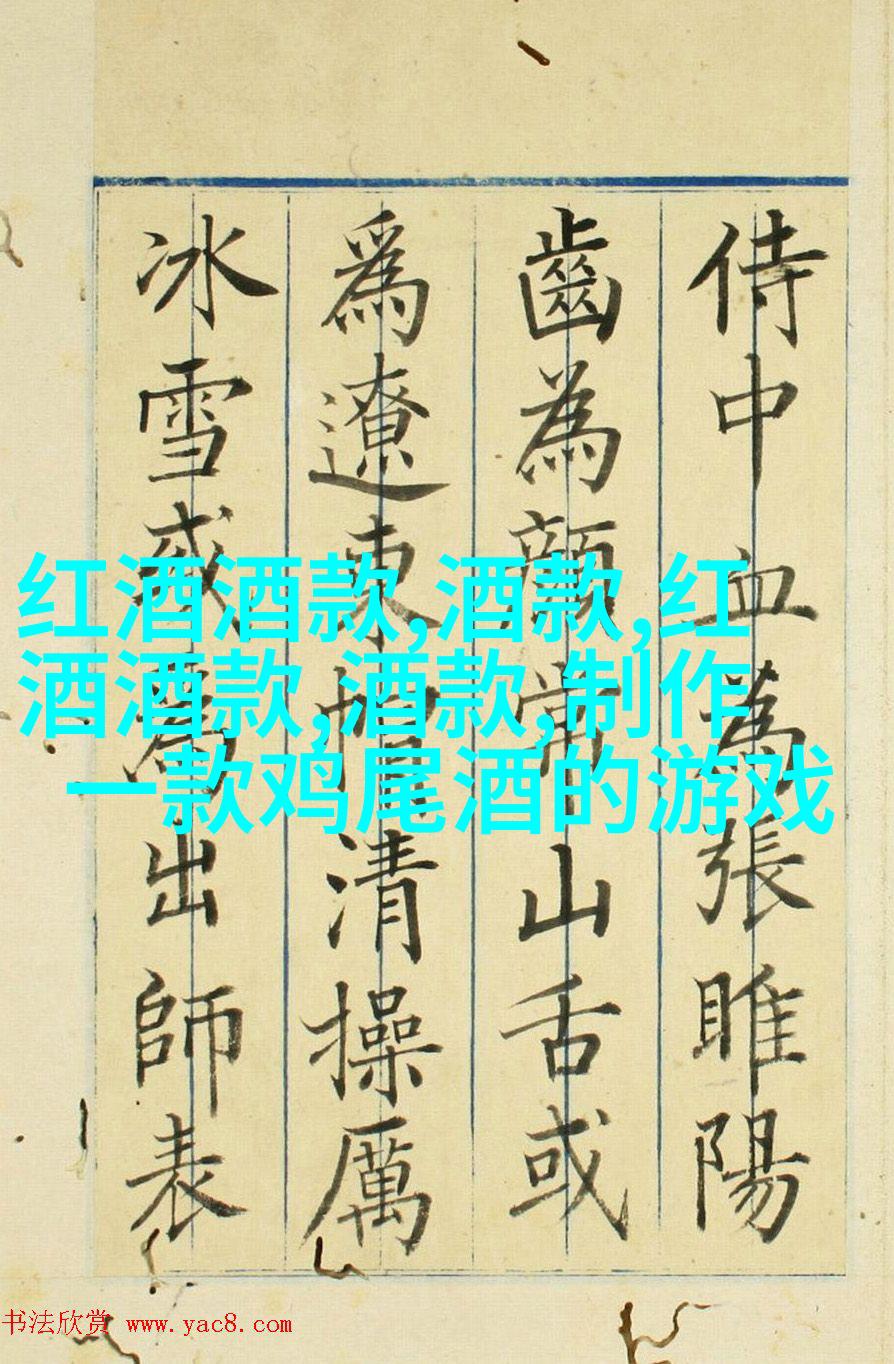 侍中血為張睢陽
齒為顏常山舌或
爲遼東帽清操厲
冰雪或爲出師表
红酒酒款,酒款,红
酒酒款,酒款,制作
一款鸡尾酒的游戏
书法欣赏 www.yac8.com